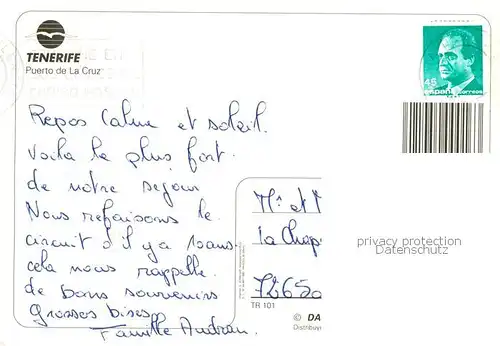 TENERIFE
Puerto de La Cruz
45
España correos
Repos Calme et soleil.
Voila le plus fort.
de notre sejour
Nous refaisons le
circuit d'il y a 10ans.
cela nous rappelle.
de bons souvenirs
grosses bises.
Famille
Mr et M
la Chap
72650
privacy protection
Datenschutz
TR 101
© DA
Distribuye